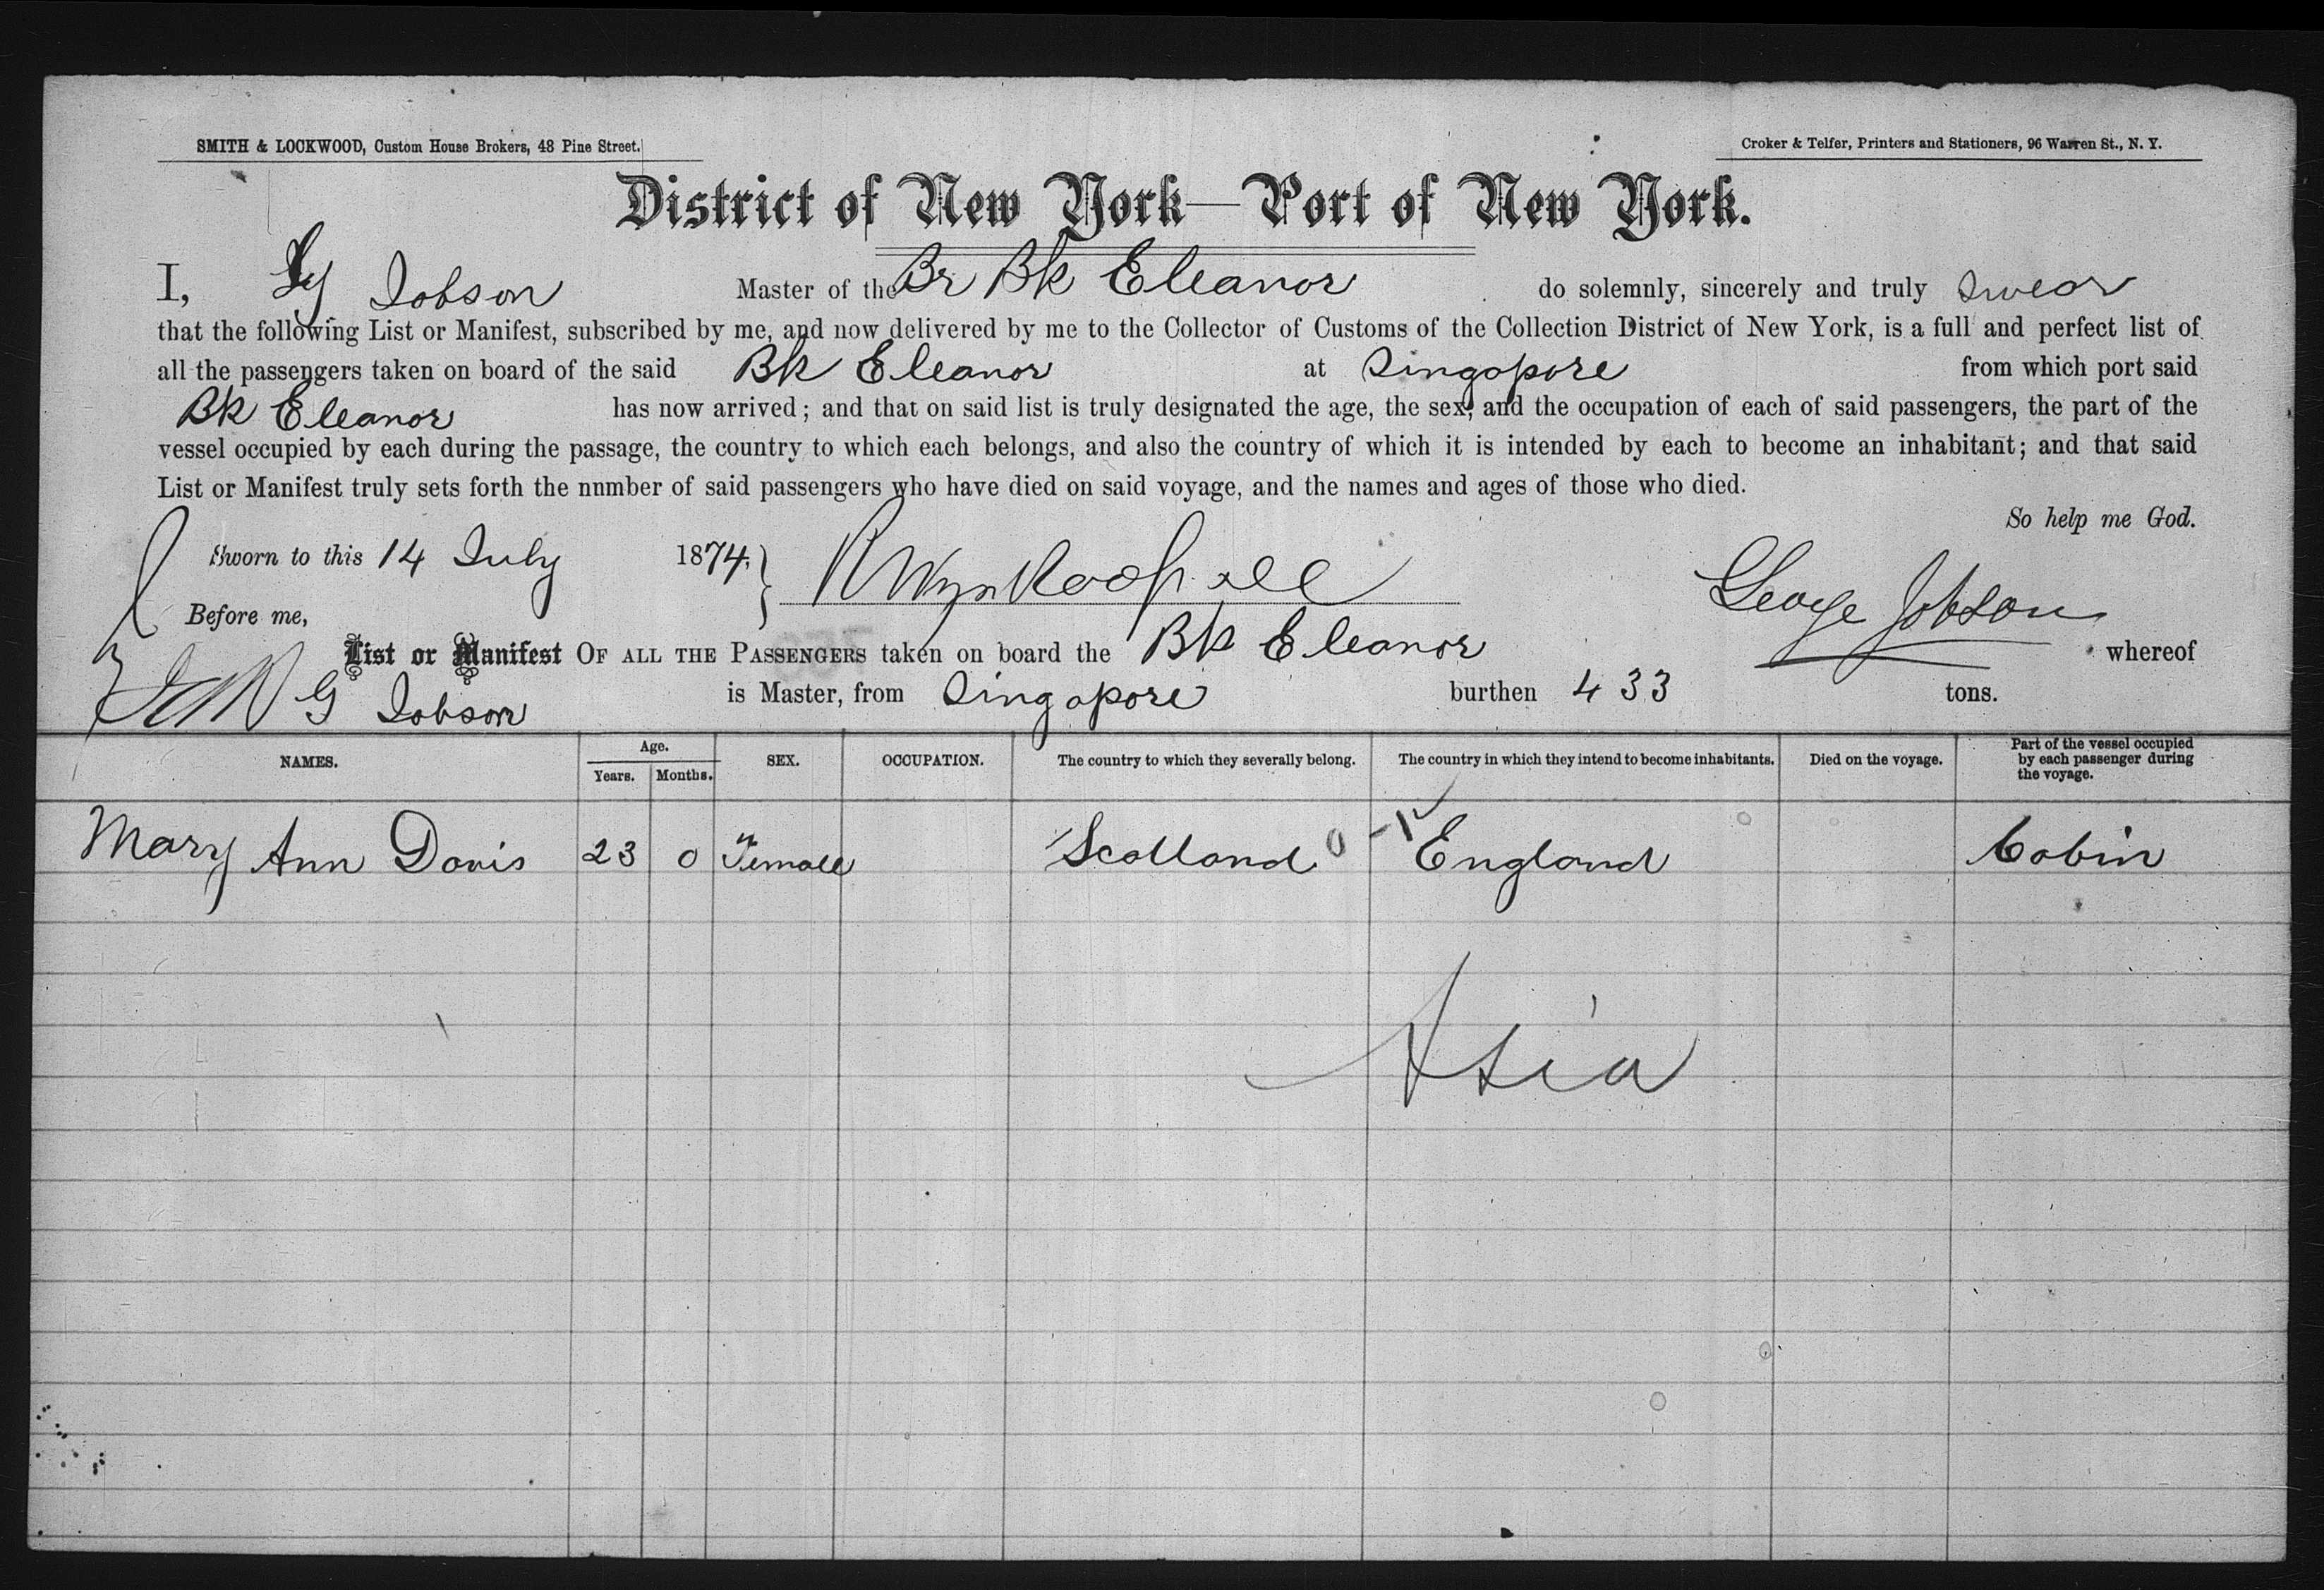 SMITH & LOCKWOOD, Custom House Brokers, 48 Pine Street.
Croker & Telfer, Printers and Stationers, 96 Warren St., N. Y.
District of New York—Port of New York.
I, Jobson Master of the Br Bk Eleanor do solemnly, sincerely and truly swear
that the following List or Manifest, subscribed by me, and now delivered by me to the Collector of Customs of the Collection District of New York, is a full and perfect list of
all the passengers taken on board of the said Bk Eleanor at Singapore from which port said
Bk Eleanor has now arrived; and that on said list is truly designated the age, the sex, and the occupation of each of said passengers, the part of the
vessel occupied by each during the passage, the country to which each belongs, and also the country of which it is intended by each to become an inhabitant; and that said
List or Manifest truly sets forth the nnmber of said passengers who have died on said voyage, and the names and ages of those who died.
So help me God.
Sworn to this 14 July 1874.
George Jobson
Before me,
List or Manifest OF ALL THE PASSENGERS taken on board the Bk Eleanor whereof
G Jobson is Master, from Singapore burthen 433 tons.
NAMES. Age. Years. Months. SEX. OCCUPATION. The country to which they severally belong. The country in which they intend to become inhabitants. Died on the voyage. Part of the vessel occupied by each passenger during the voyage.
Mary Ann Davis 23 0 Female Scotland England Cabin
Asia